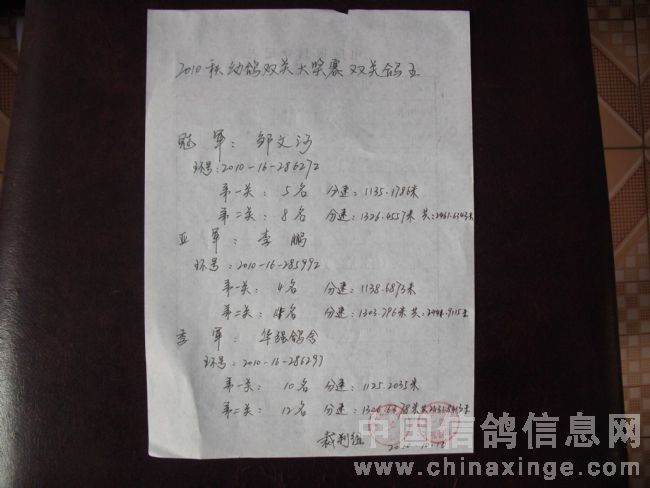 2010秋幼鸽双关大奖赛双关鸽王
冠 军：邹文河
环号：2010-16-286272
第一关： 5名 分速：1135.1786米
第二关： 8名 分速：1326.4557米 共：2461.6343米
亚 军： 李 鹏
环号：2010-16-285992
第一关： 4名 分速：1138.6873米
第二关： 名 分速：1303.296米 共：
季 军： 华强鸽舍
环号：2010-16-286297
第一关： 10名 分速：1125.2035米
第二关： 12名 分速：
裁判组
中国信鸽信息网
www.chinaxinge.com